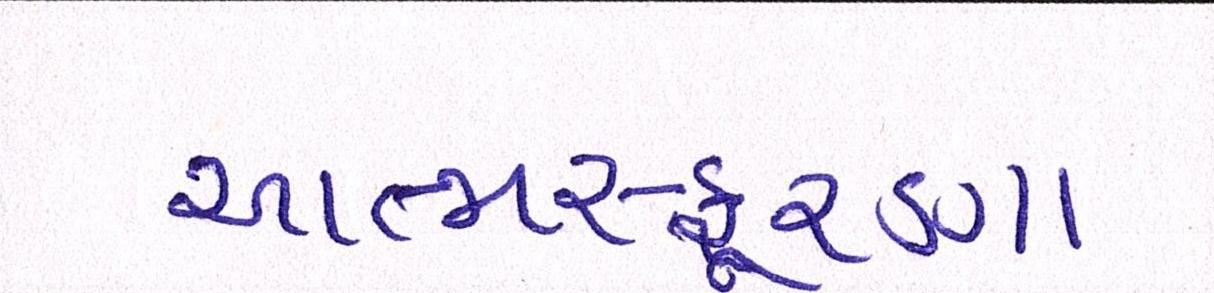 આત્મસ્ફૂરણા